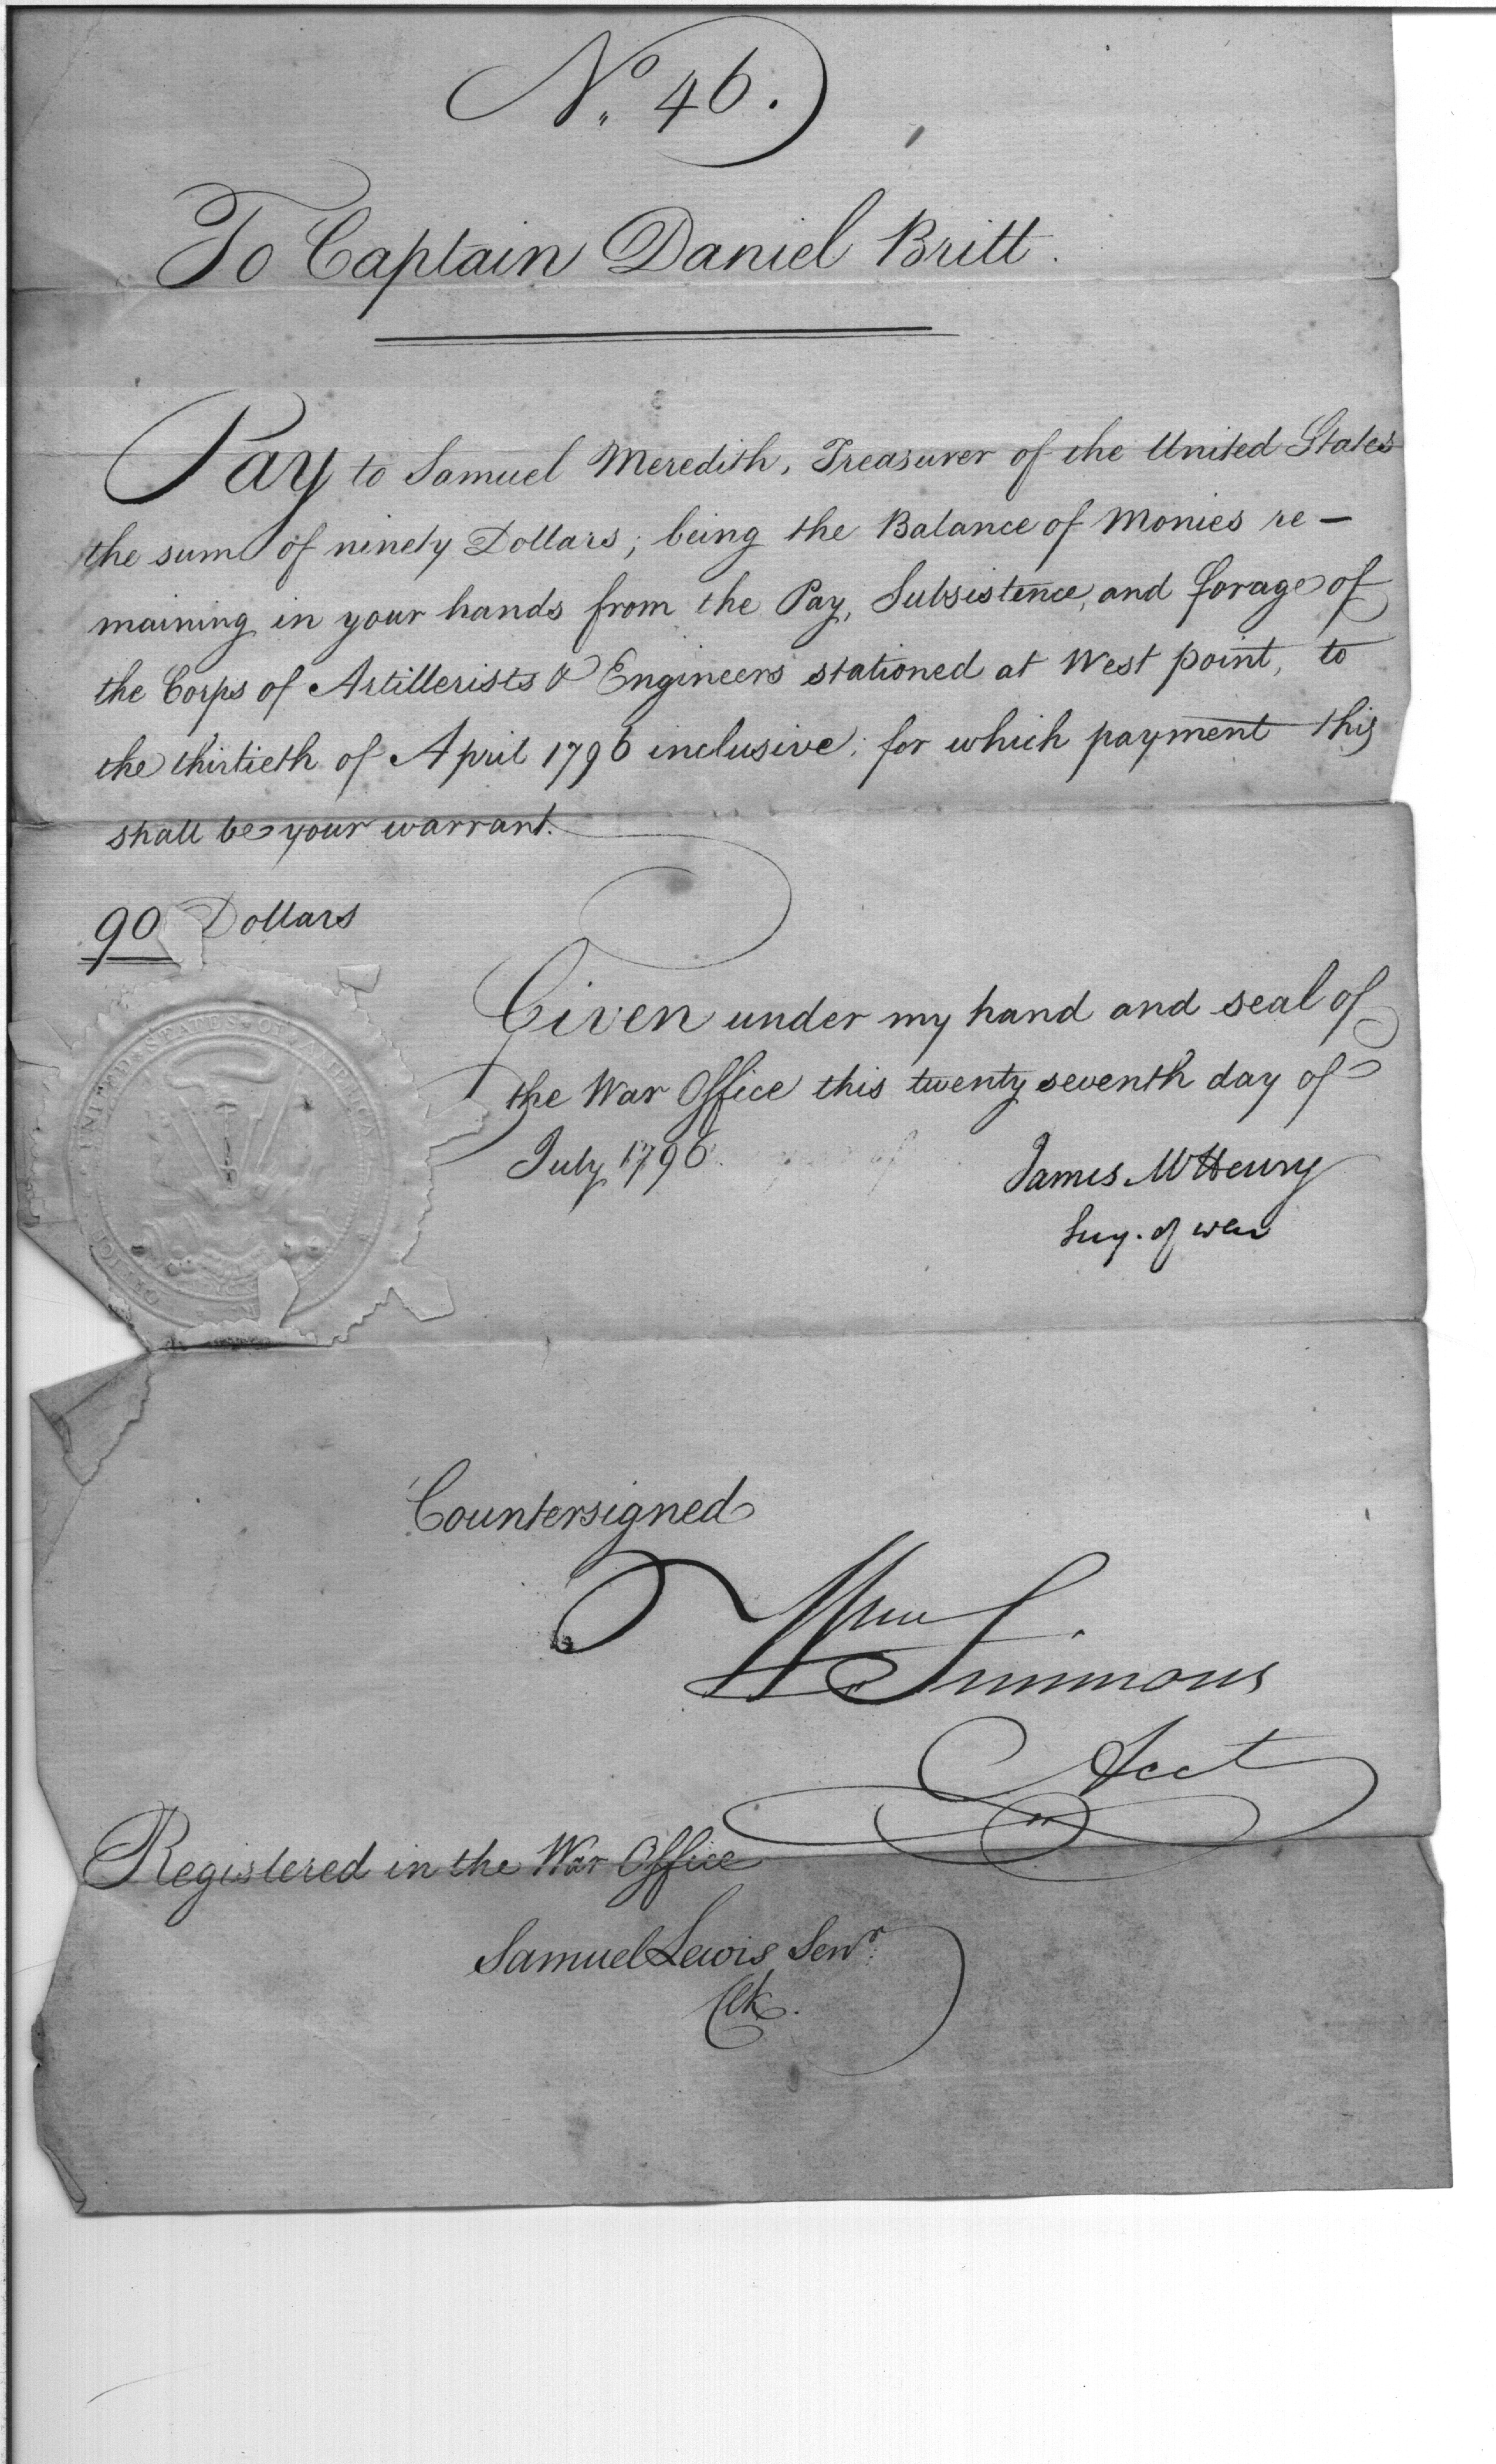 No. 46.
To Captain Daniel Britt.
Pay to Samuel Meredith, Treasurer of the United States
the sum of ninety Dollars; being the Balance of Monies re-
maining in your hands from the Pay, Subsistence, and forage of
the Corps of Artillerists & Engineers stationed at West point, to
the thirtieth of April 1796 inclusive; for which payment this
shall be your warrant.
90 Dollars
UNITED STATES OF AMERICA
OFFICE
Given under my hand and seal of
the War Office this twenty seventh day of
July 1796.
James McHenry
Secy. of war
Countersigned
Wm Simmons
Acct
Registered in the War Office
Samuel Lewis Senr.
Clk.